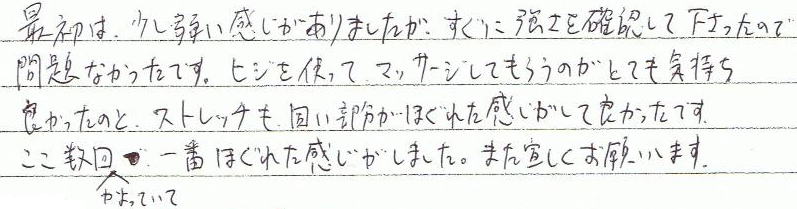 最初は、少し弱い感じがありましたが、すぐに強さを確認して下さったので
問題なかったです。ヒジを使って、マッサージしてもらうのがとても気持ち
良かったのと、ストレッチも、固い部分がほぐれた感じがして良かったです。
ここ数回で、一番ほぐれた感じがしました。また宜しくお願いします。
かよっていて